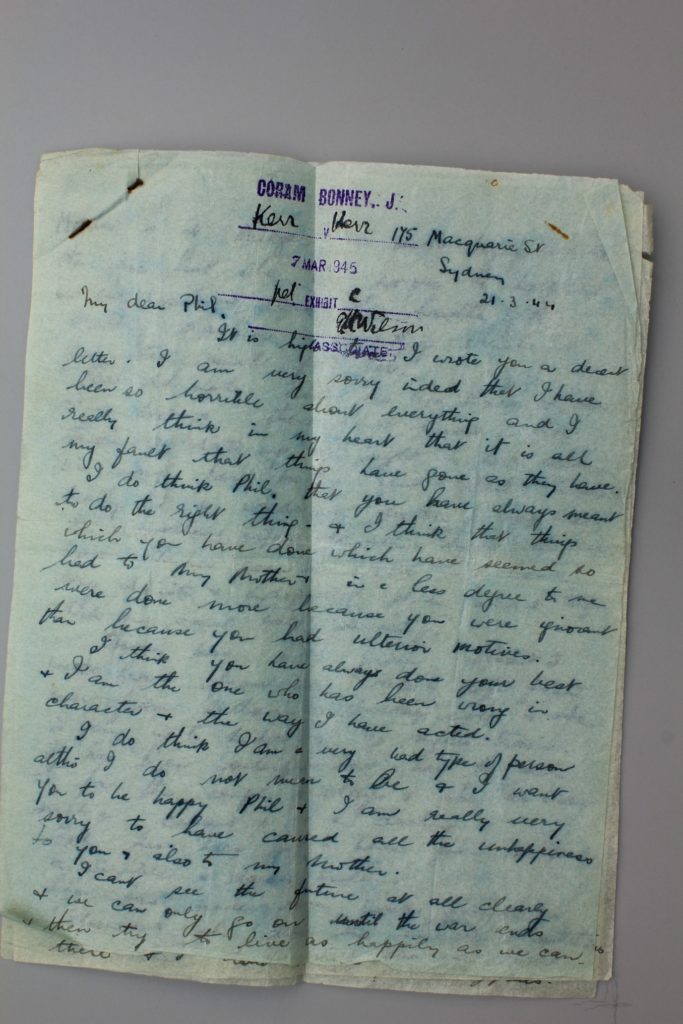 CORAM BONNEY, J.
Kerr v Kerr
175 Macquarie St
Sydney
7 MAR 1945
21.3.44
pet EXHIBIT C
Wilson
ASSOCIATE
My dear Phil,
It is high time I wrote you a decent
letter. I am very sorry indeed that I have
been so horrible about everything and I
really think in my heart that it is all
my fault that things have gone as they have.
I do think Phil, that you have always meant
to do the right thing - & I think that things
which you have done which have seemed so
bad to my Mother & in a less degree to me
were done more because you were ignorant
than because you had ulterior motives.
I think you have always done your best
& I am the one who has been wrong in
character & the way I have acted.
I do think I am a very bad type of person
altho I do not mean to be & I want
you to be happy Phil & I am really very
sorry to have caused all the unhappiness
to you & also to my Mother.
I cant see the future at all clearly
& we can only go on until the war ends
& then try to live as happily as we can.
there & I